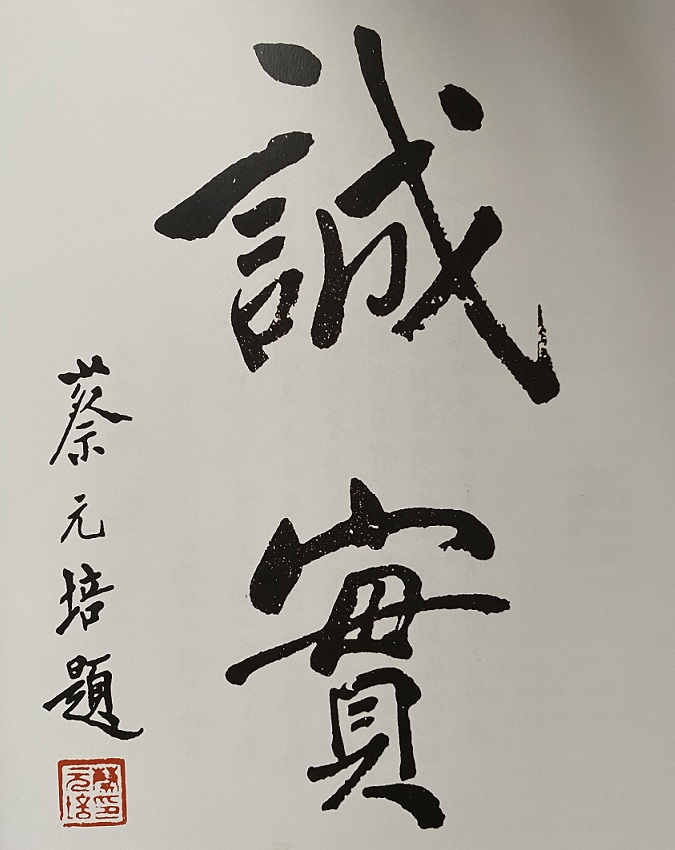 誠實
蔡元培題
蔡元培印